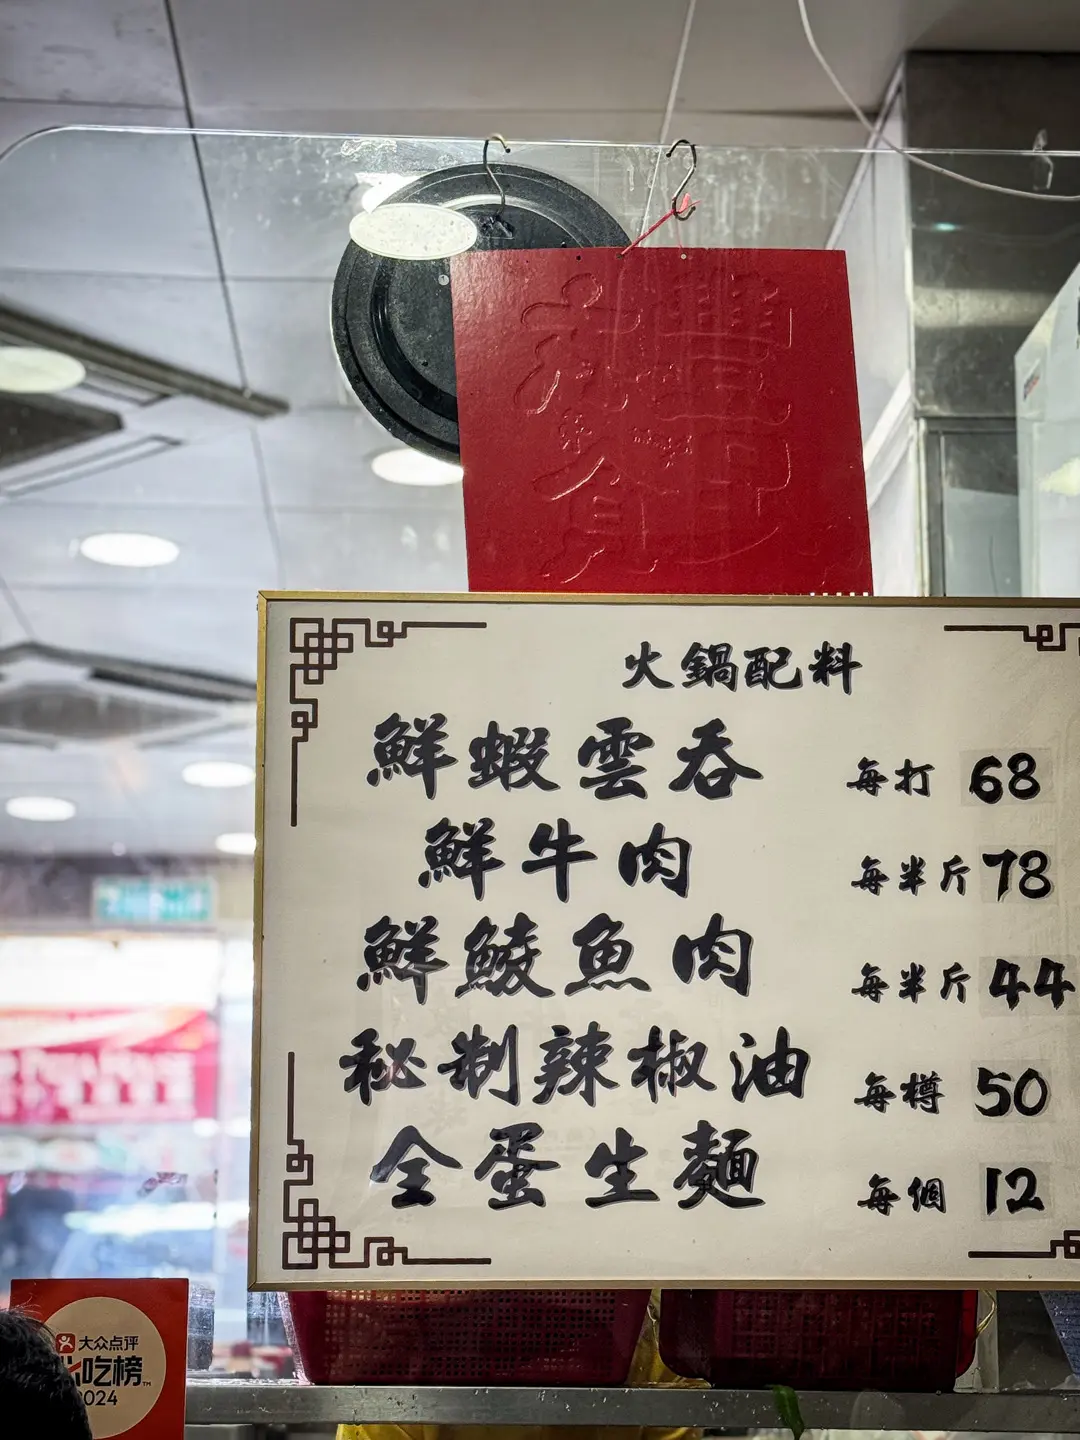 火鍋配料
鮮蝦雲吞 每打 68
鮮牛肉 每半斤 78
鮮鯪魚肉 每半斤 44
秘制辣椒油 每樽 50
全蛋生麵 每個 12
大众点评
吃榜